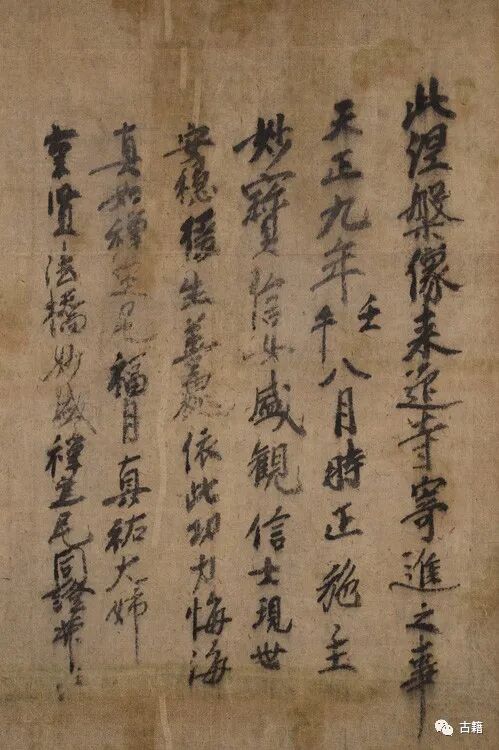 此涅槃像来迎寺寄進之事
天正九年壬午八月時正施主
妙寳信女盛観信士現世
安穏後生善處依此功力悔海
真如禅定尼福月真祐大姉
宗賢法橋妙盛禅定尼同證
古籍